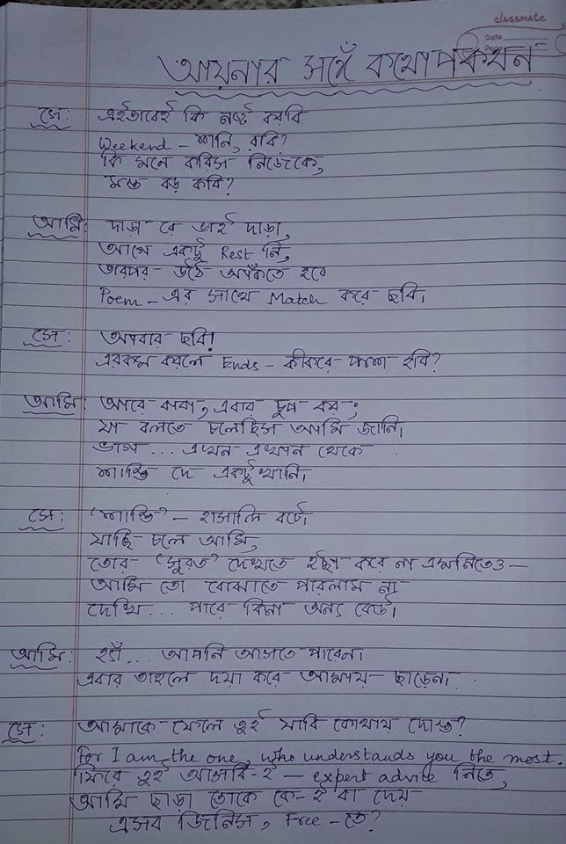 classmate
Date
Page
আয়নার সঙ্গে কথোপকথন
সে: এইভাবেই কি নষ্ট করবি
Weekend - শনি, রবি?
কি মনে করিস নিজেকে,
মস্ত বড় কবি?
আমি: দাড়া রে ভাই দাড়া,
আগে একটু Rest নি,
তারপর উঠে আঁকতে হবে
Poem - এর সাথে Match করে ছবি।
সে: আবার ছবি!
এরকম করলে Ends - কীকরে পাশ হবি?
আমি: আরে বাবা, এবার চুপ কর;
যা বলতে চলেছিস আমি জানি।
ভাগ ... এখন এখান থেকে
শান্তি দে একটুখানি।
সে: 'শান্তি' - হাসালি বটে।
যাচ্ছি চলে আমি,
তোর 'সুরত' দেখতে ইচ্ছা করে না এমনিতেও -
আমি তো বোঝাতে পারলাম না
দেখি ... পারে কিনা অন্য কেউ।
আমি: হ্যাঁ ... আপনি আসতে পারেন।
এবার তাহলে দয়া করে আমায় ছাড়েন।
সে: আমাকে ফেলে তুই যাবি কোথায় দোস্ত?
For I am the one, who understands you the most.
ফিরে তুই আসবি-ই - expert advice নিতে,
আমি ছাড়া তোকে কে-ই বা দেয়
এসব জিনিস, Free - তে?